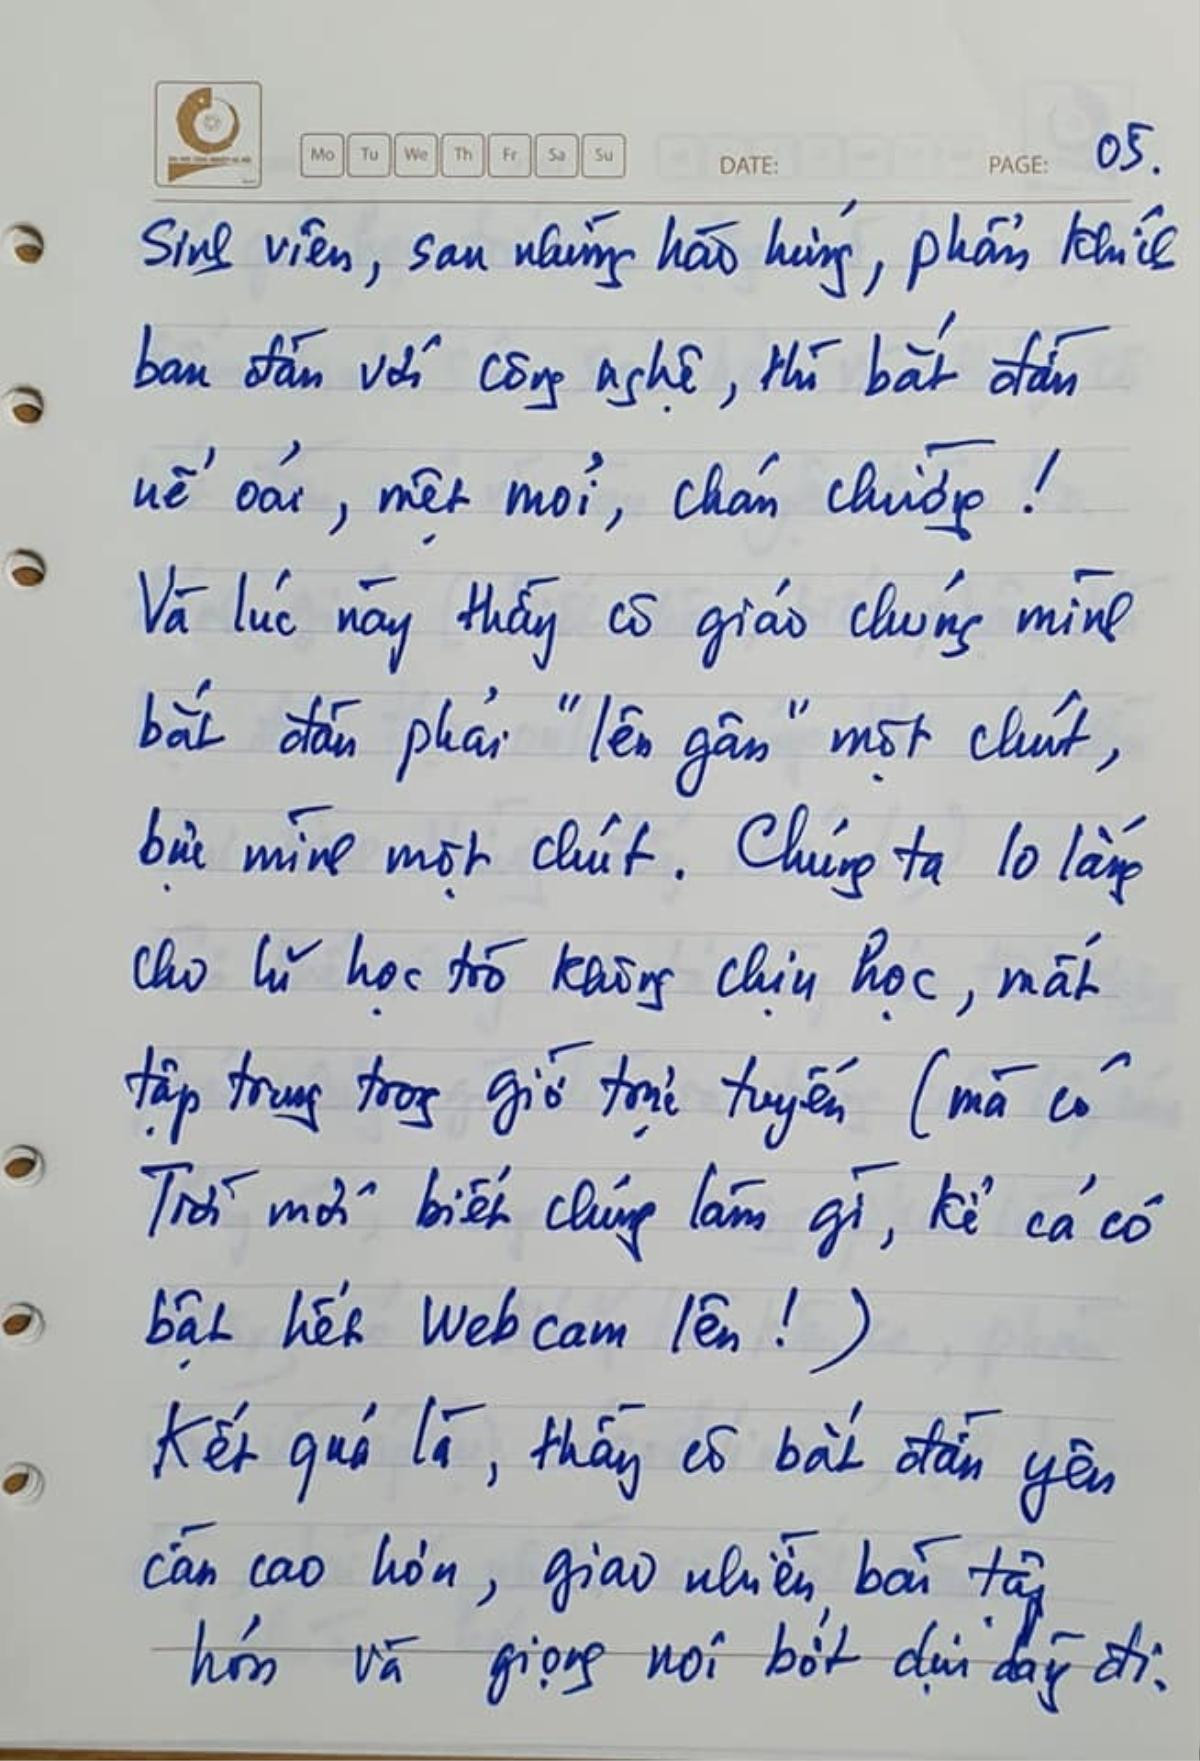 Mo Tu We Th Fr Sa Su DATE: PAGE: 05.
Sinh viên, sau những hào hứng, phấn khích
ban đầu với công nghệ, thì bắt đầu
uể oải, mệt mỏi, chán chường!
Và lúc này thầy cô giáo chúng mình
bắt đầu phải "lên gân" một chút,
bực mình một chút. Chúng ta lo lắng
cho lũ học trò không chịu học, mất
tập trung trong giờ trực tuyến (mà có
Trời mới biết chúng làm gì, kể cả có
bật hết Webcam lên!)
Kết quả là, thầy cô bắt đầu yêu
cầu cao hơn, giao nhiều bài tập
hơn và giọng nói bớt dịu dàng đi.